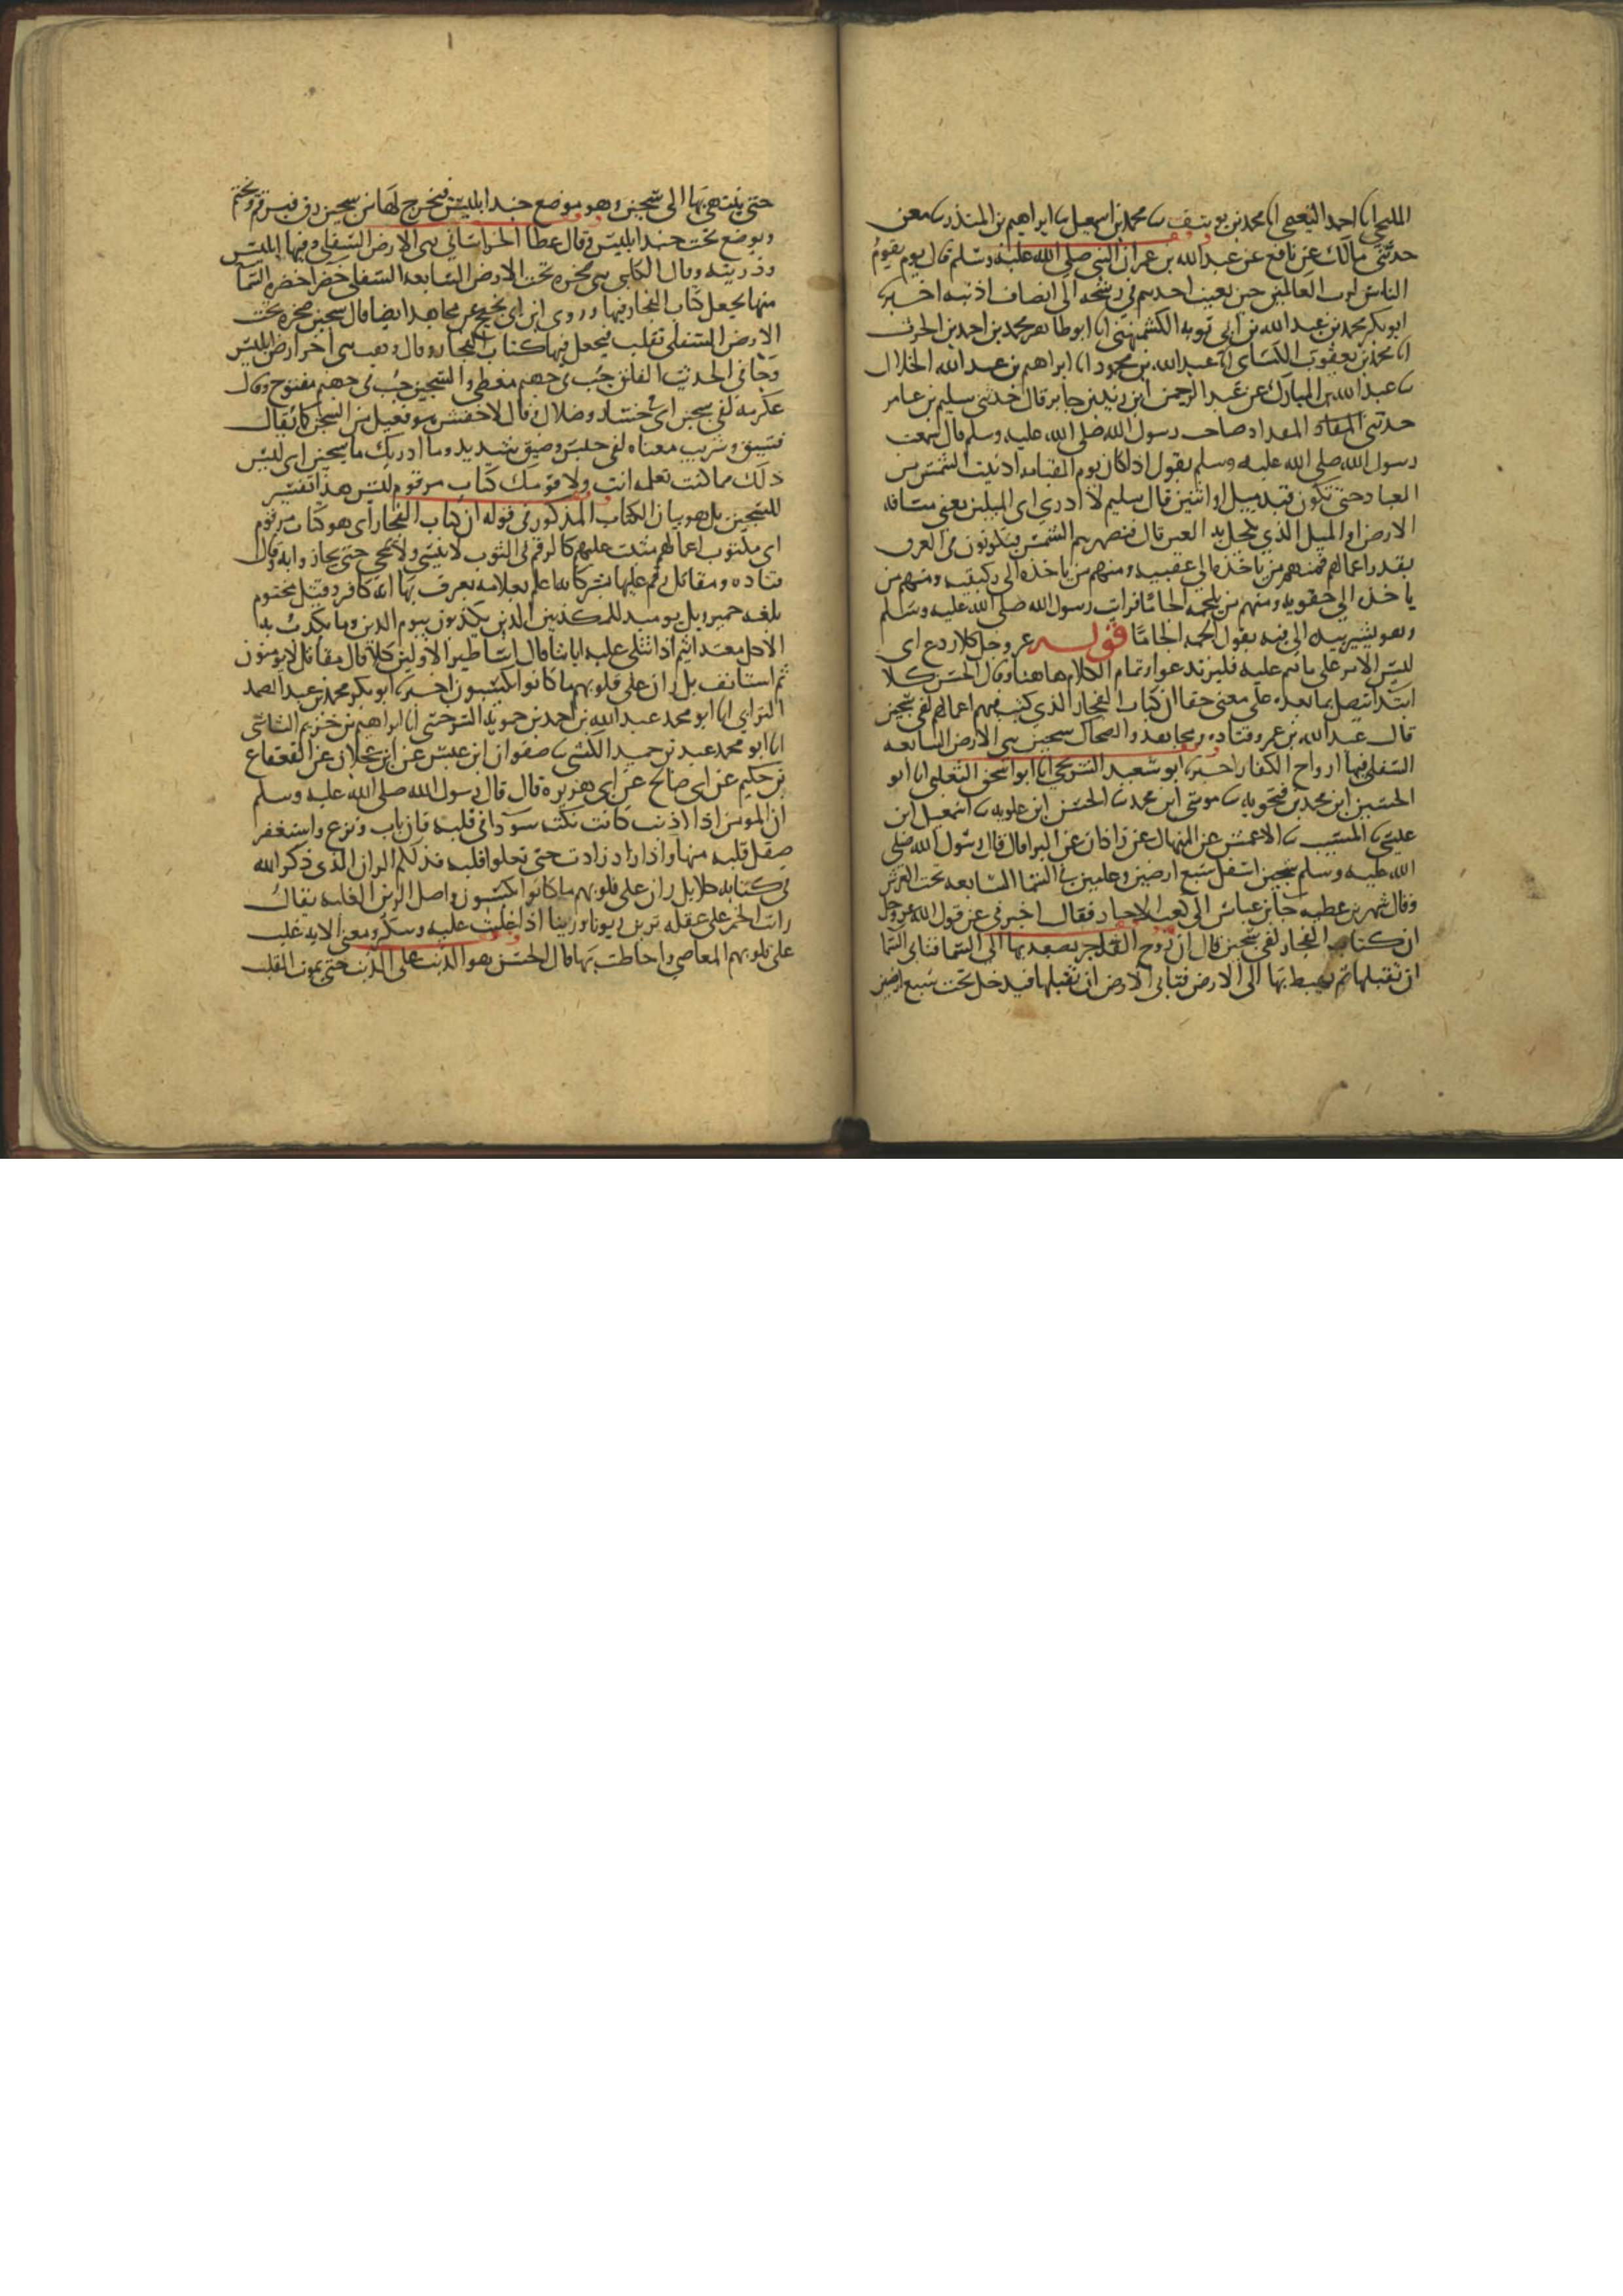 المليحي انا احمد النعيمي انا محمد بن يوسف ثنا محمد بن اسمعيل ثنا ابراهيم بن المنذر ثنا معن
حدثني مالك عن نافع عن عبد الله بن عمر ان النبي صلى الله عليه وسلم قال يوم يقوم
الناس لرب العالمين حين يغيب احدهم في رشحه الى انصاف اذنيه اخبرنا
ابو بكر محمد بن عبد الله بن ابي توبه الكشميهني انا ابو طاهر محمد بن احمد بن الحرث
انا محمد بن يعقوب الكساى انا عبد الله بن محمود انا ابراهيم بن عبد الله الخلال
ثنا عبد الله بن المبارك عن عبد الرحمن ابن يزيد بن جابر قال حدثني سليم بن عامر
حدثني المقداد صاحب رسول الله صلى الله عليه وسلم قال سمعت
رسول الله صلى الله عليه وسلم يقول اذا كان يوم القيامه ادنيت الشمس من
العباد حتى تكون قيد ميل او اثنين قال سليم لا ادري اى الميلين يعني مسافه
الارض او الميل الذي يكحل به العين قال فتصهرهم الشمس فيكونون في العرق
بقدر اعمالهم فمنهم من ياخذه الى عقبيه ومنهم من ياخذه الى ركبتيه ومنهم من
ياخذه الى حقويه ومنهم من يلجمه الجاما فرايت رسول الله صلى الله عليه وسلم
وهو يشير بيده الى فيه يقول يلجمه الجاما قوله عز وجل كلا ردع اى
ليس الامر على ما هم عليه فليرتدعوا وتمام الكلام هاهنا وقال الحسن كلا
ابتدا يتصل بما بعده على معنى حقا ان كتاب الفجار الذي كتب فيهم اعمالهم لفي سجين
قال عبد الله بن عمر وقتاده ومجاهد والضحاك سجين هي الارض السابعه
السفلى فيها ارواح الكفار اخبرنا ابو سعيد الشريحي انا ابو اسحق الثعلبي انا ابو
الحسين ابن محمد بن فنجويه ثنا موسى ابن محمد ثنا الحسن ابن علويه ثنا اسمعيل ابن
عيسى ثنا المسيب ثنا الاعمش عن المنهال عن زاذان عن البرا قال قال رسول الله صلى
الله عليه وسلم سجين اسفل سبع ارضين وعليين في السما السابعه تحت العرش
وقال شمر بن عطيه جا ابن عباس الى كعب الاحبار فقال اخبرني عن قول الله عز وجل
ان كتاب الفجار لفي سجين قال ان روح الفاجر يصعد بها الى السما فتابى السما
ان تقبلها ثم يهبط بها الى الارض فتابى الارض ان تقبلها فيدخل تحت سبع ارضين
حتى ينتهي بها الى سجين وهو موضع جند ابليس فيخرج لها من سجين رق فيرقم ويختم
ويوضع تحت جند ابليس وقال عطا الخراساني هي الارض السفلى وفيها ابليس
وذريته وقال الكلبي هي صخره تحت الارض السابعه السفلى خضرا خضره السما
منها يجعل كتاب الفجار فيها وروى ابن ابي نجيح عن مجاهد ايضا قال سجين صخره تحت
الارض السفلى تقلب فيجعل فيها كتاب الفجار وقال وهب هي اخر ارض ابليس
وجا في الحديث الفلق جب في جهنم مغطى والسجين جب في جهنم مفتوح وقال
عكرمه لفي سجين اى خسار وضلال وقال الاخفش هو فعيل من السجن كما يقال
فسيق وشريب معناه لفي حبس وضيق شديد وما ادريك ما سجين اى ليس
ذلك مما كنت تعلمه انت ولا قومك كتاب مرقوم ليس هذا تفسير
للسجين بل هو بيان الكتاب المذكور في قوله ان كتاب الفجار اى هو كتاب مرقوم
اى مكتوب اعمالهم مثبت عليهم كالرقم في الثوب لا ينسى ولا يمحى حتى يجازوا به وقال
قتاده ومقاتل رقم عليها بشر كانه اعلم بعلامه يعرف بها انه كافر وقيل مختوم
بلغه حمير ويل يوميذ للمكذبين الذين يكذبون بيوم الدين وما يكذب به
الا كل معتد اثيم اذا تتلى عليه اياتنا قال اساطير الاولين كلا قال مقاتل لا يومنون
ثم استانف بل ران على قلوبهم ما كانوا يكسبون اخبرنا ابو بكر محمد بن عبد الصمد
الترابي انا ابو محمد عبد الله بن احمد بن حمويه السرخسي انا ابراهيم بن خزيم الشاشي
انا ابو محمد عبد بن حميد الكشي ثنا صفوان ابن عيسى عن ابن عجلان عن القعقاع
بن حكيم عن ابي صالح عن ابي هريره قال قال رسول الله صلى الله عليه وسلم
ان المومن اذا اذنب كانت نكته سودا في قلبه فان تاب ونزع واستغفر
صقل قلبه منها واذا زاد زادت حتى تعلوا قلبه فذلكم الران الذي ذكر الله
في كتابه كلا بل ران على قلوبهم ما كانوا يكسبون واصل الرين الغلبه يقال
رانت الخمر على عقله ترين ريونا ورينا اذا غلبت عليه وسكر ومعنى الايه غلبت
على قلوبهم المعاصي واحاطت بها قال الحسن هو الذنب على الذنب حتى يموت القلب